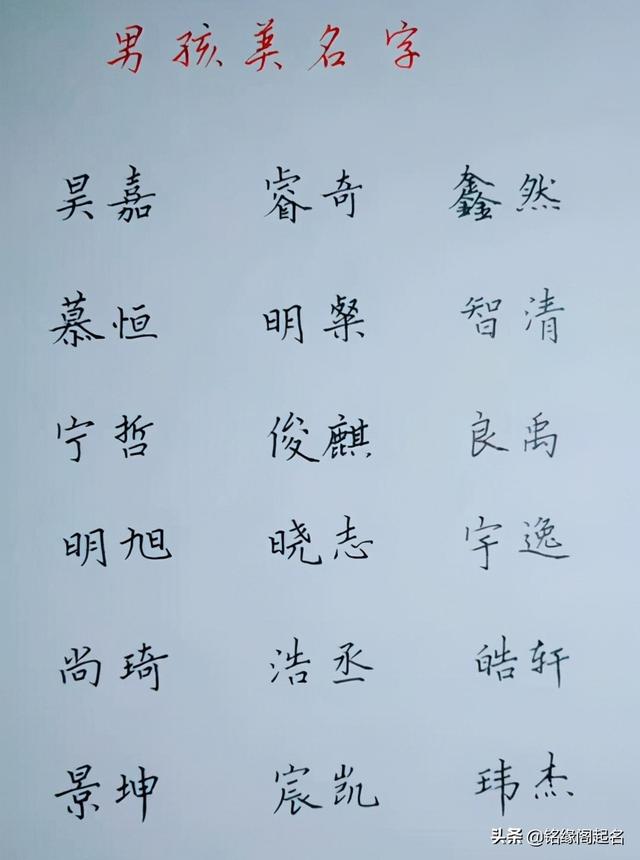 男孩美名字
昊嘉 睿奇 鑫然
慕恒 明粲 智清
宁哲 俊麒 良禹
明旭 晓志 宇逸
尚琦 浩丞 皓轩
景坤 宸凯 玮杰
头条 @铭缘阁起名